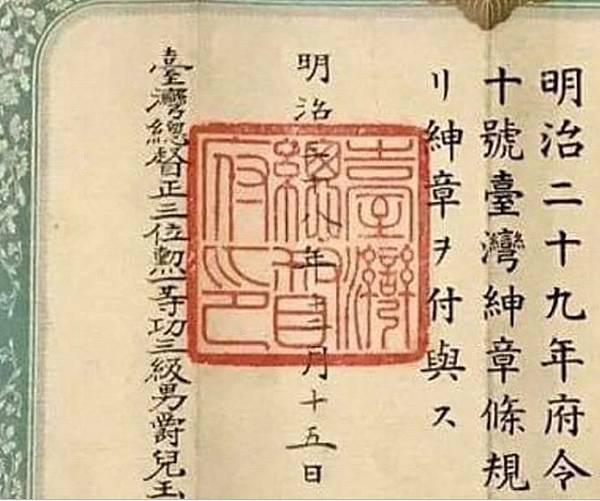 明治二十九年府令
十號臺灣紳章條規
リ紳章ヲ付與ス
明治三十八年十二月十五日
臺灣總督正三位勲一等功三級男爵兒玉
臺灣
總督
府印